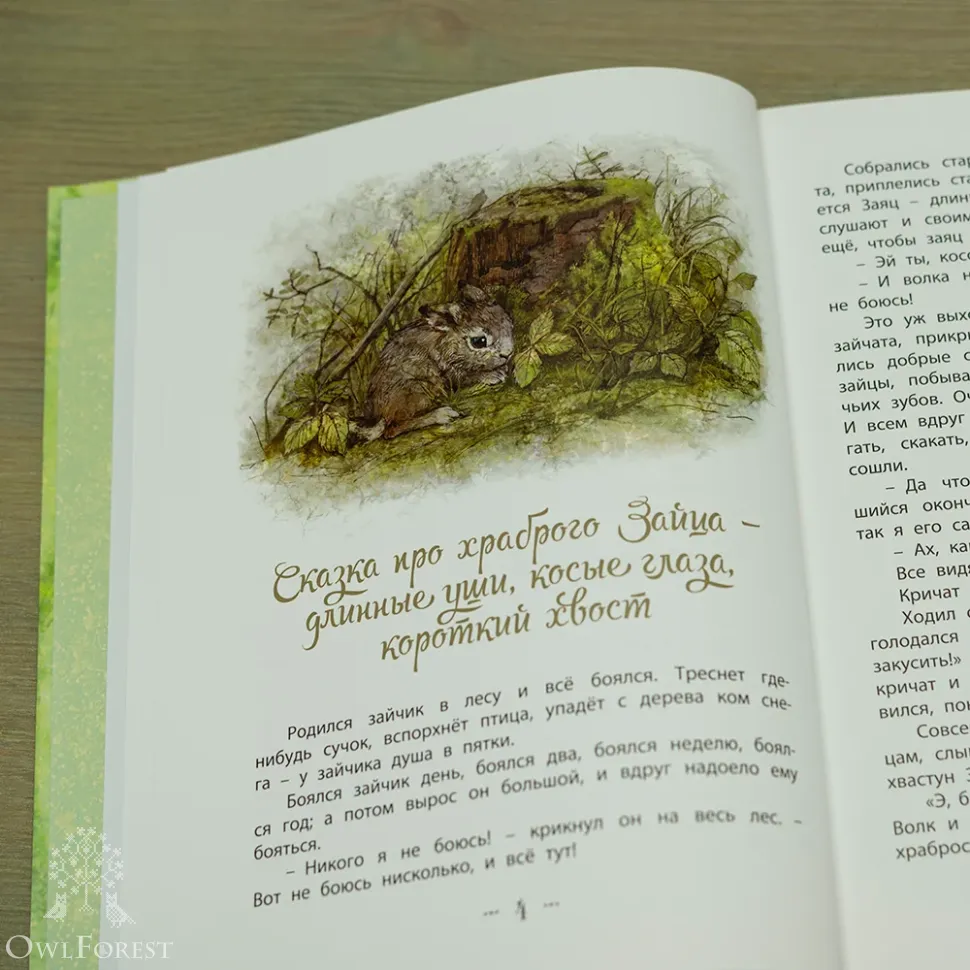 Сказка про храброго Зайца –
длинные уши, косые глаза,
короткий хвост
Родился зайчик в лесу и всё боялся. Треснет где-
нибудь сучок, вспорхнёт птица, упадёт с дерева ком сне-
га – у зайчика душа в пятки.
Боялся зайчик день, боялся два, боялся неделю, боял-
ся год; а потом вырос он большой, и вдруг надоело ему
бояться.
– Никого я не боюсь! – крикнул он на весь лес. –
Вот не боюсь нисколько, и всё тут!
4
Собрались
та, приплелись
ется Заяц –
слушают и
ещё, чтобы заяц
– Эй ты,
– И волка
не боюсь!
Это уж
зайчата,
лись добрые
зайцы,
чьих зубов.
И всем вдруг
гать, скакать,
сошли.
– Да что
шийся
так я его
– Ах,
Все
Кричат
Ходил
голодался
закусить!»
кричат и
вился,
цам,
хвастун
«Э,
Волк и
OwlForest